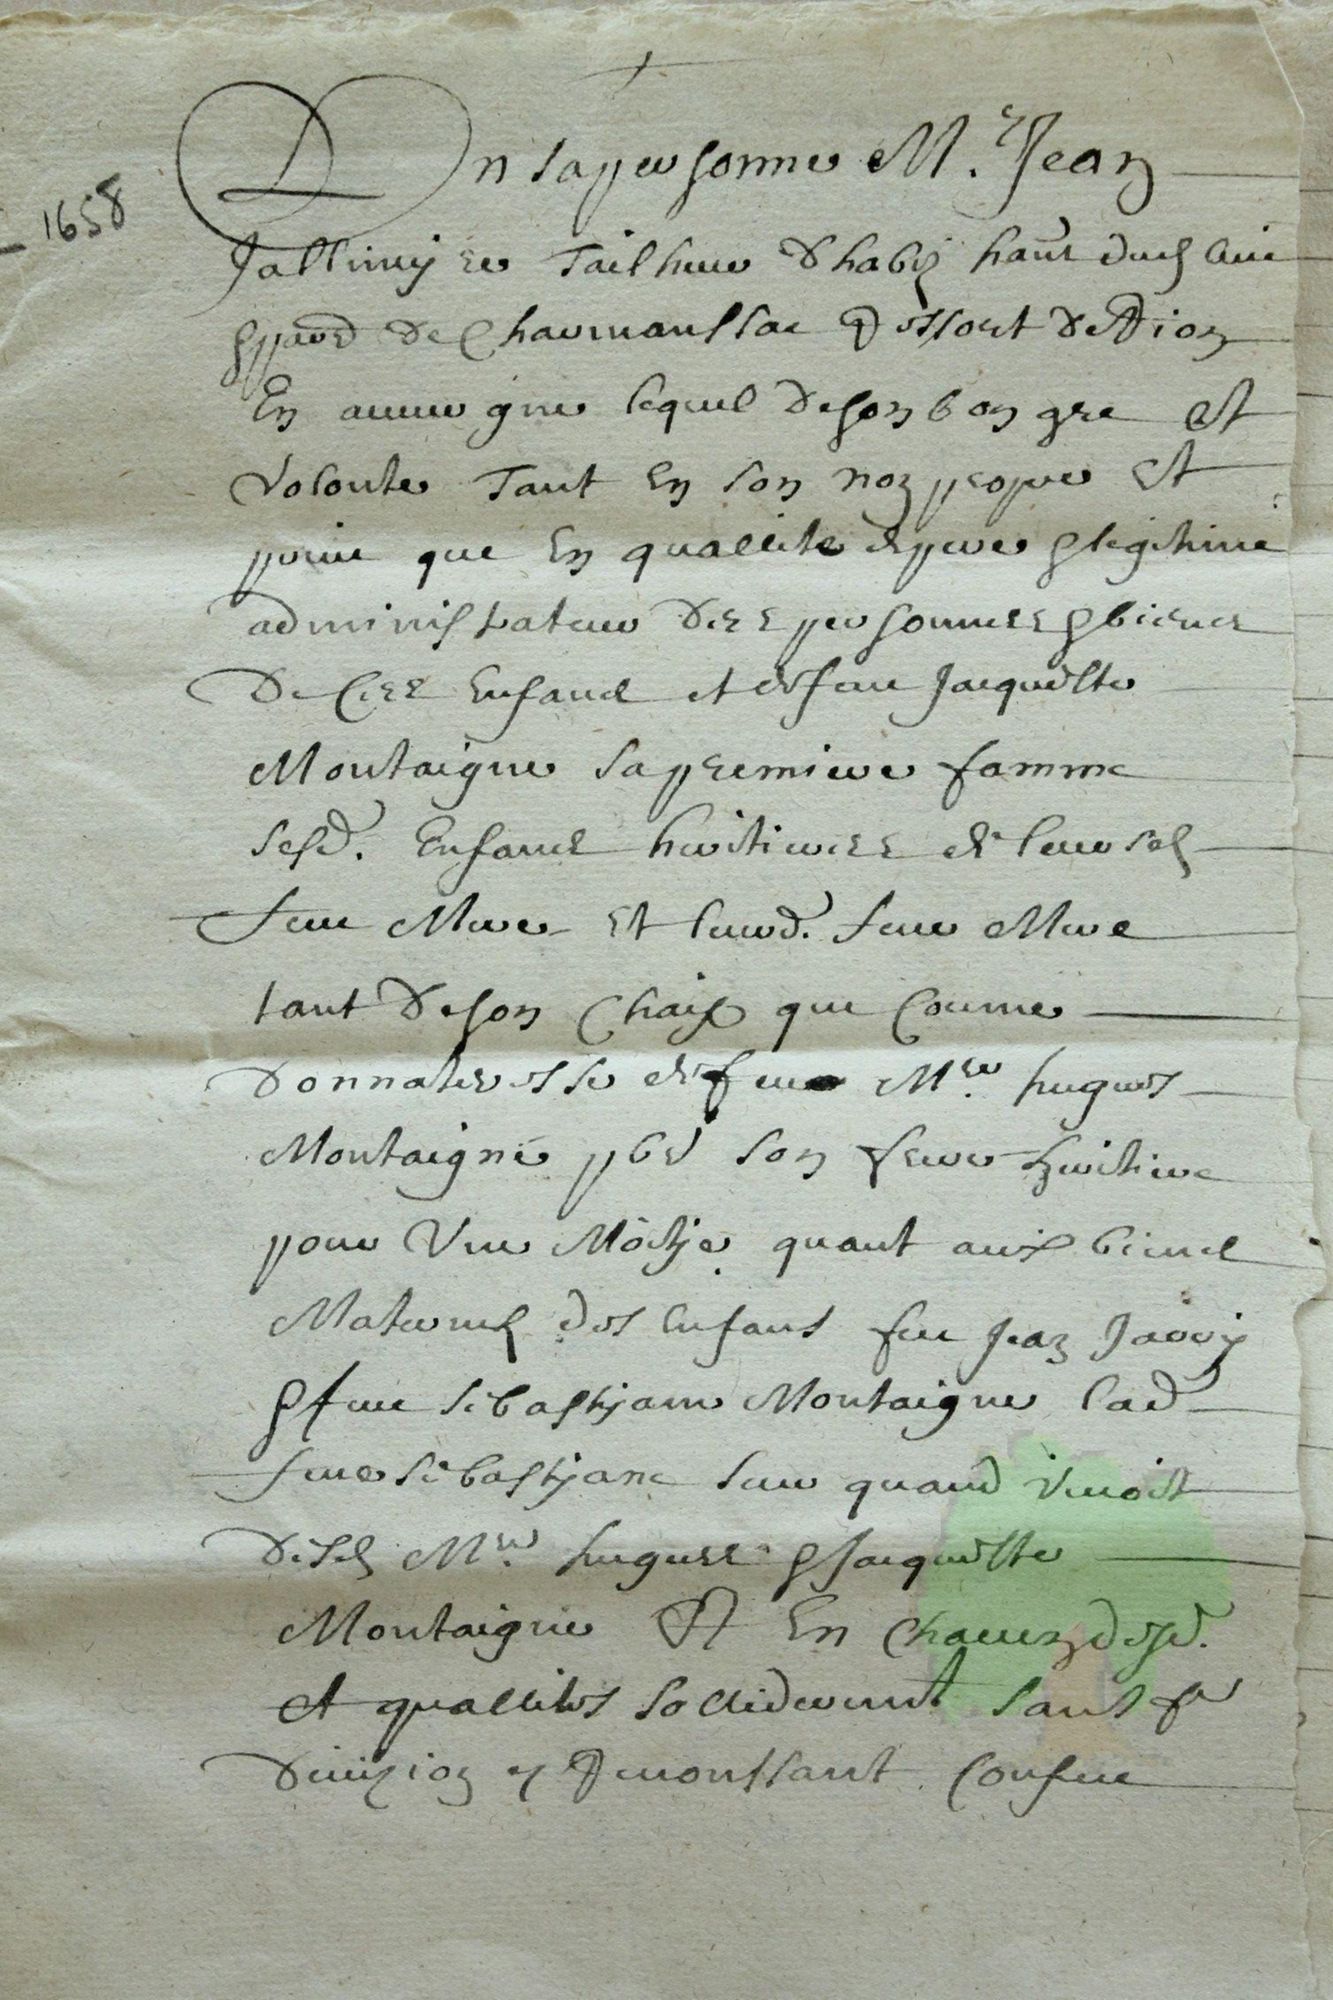 1658
En sa personne Mr. Jean
tailheur d'habitz
De Charmanssac Ressort de Rion
En auvergne lequel de son bon gre et
volonte tant en son nom propre et
prive que en quallite de pere & legitime
administrateur des personnes & biens
De ses enfans et de feue Jacquette
Montaigne sa premiere famme
sesd. Enfans heritieres de leurs
feue Mere et leurd. feue Mere
tant de son chaif que comme
Donnateresse de feue Mre. hugues
Montaigne pbre son frere heritiere
pour une Moitje. quant aux biens
Maternelz des enfans feu Jean
& feue sebastjane Montaigne lad
feue sebastjane seur quand vivoit
Desd Mre. hugues & Jacquette
Montaigne Et En chacun desd.
et quallites sollidement sans
Divizion et Renonssant